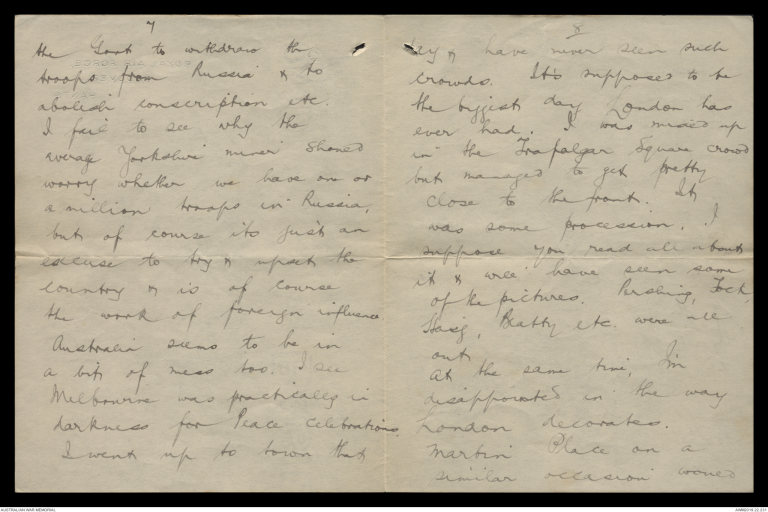 7
the Govt to withdraw the
troops from Russia & to
abolish conscription etc.
I fail to see why the
average Yorkshire miner should
worry whether we have one or
a million troops in Russia,
but of course its just an
excuse to try & upset the
country & is of course
the work of foreign influence.
Australia seems to be in
a bit of mess too. I see
Melbourne was practically in
darkness for Peace celebrations.
I went up to town that
8
day & have never seen such
crowds. It's supposed to be
the biggest day London has
ever had. I was mixed up
in the Trafalgar Square crowd
but managed to get pretty
close to the front. It
was some procession. I
suppose you read all about
it & will have seen some
of the pictures. Pershing, Foch,
Haig, Beatty etc. were all
out
At the same time, I'm
disappointed in the way
London decorates.
Martin Place on a
similar occasion would
AUSTRALIAN WAR MEMORIAL